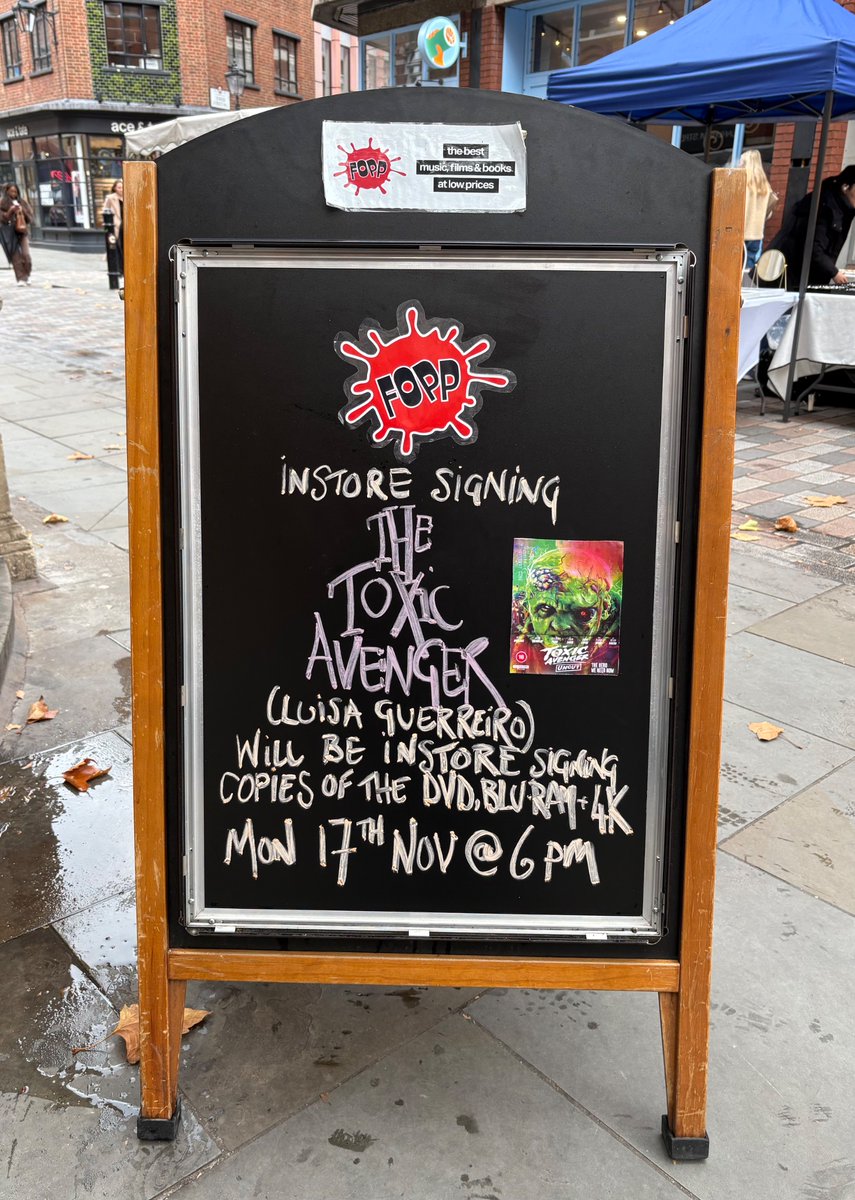 ace & tate
ac
FOPP
the best
music, films & books
at low prices
FOPP
INSTORE SIGNING
THE
TOXIC
AVENGER
(LUISA GUERREIRO)
WILL BE INSTORE SIGNING
COPIES OF THE DVD, BLU-RAY + 4K
MON 17TH NOV @ 6 PM
TOXIC
AVENGER
UNCUT
THE HERO
WE NEED NOW
18